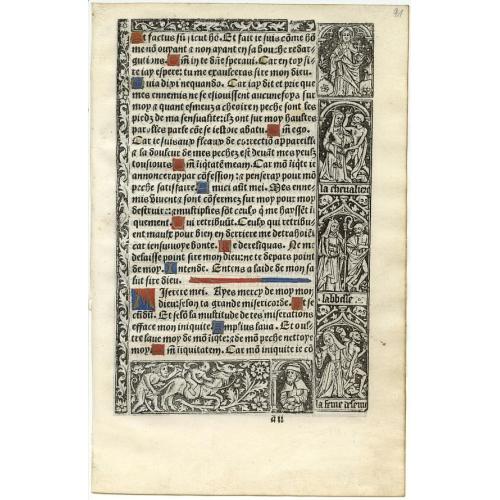 Et factus sū sicut hō. Et fait ie suis cōme hō
me nō ouyant ⁊ non ayant en sa bouche redar
gutions. Qm̄ in te dn̄e speraui. Car en toy si
re iay espere: tu me exauseras sire mon dieu.
Quia dixi nequando. Car iay dit et prie que
mes ennemis ne se esiouissent aucunefoys sur
moy ⁊ quant esmeuz a cheoir en peche sont les
piedz de ma sensualite ilz ont sur moy haultes
parolles parlé cōe se iestoie abatu. Qm̄ ego.
Car ie suis au fleau de correctiō appareille
⁊ la douleur de mes pechez est deuāt mes yeulx
tousiours. Qm̄ iiqtatē meam. Car mō iiqte ie
annonceray par cōfession: ⁊ penseray pour mō
peche satisfaire. Inimici aūt mei. Mes enne
mis viuent ⁊ sont cōfermez sur moy pour moy
destruire: ⁊ multiplies sōt ceulx q̄ me hayssēt i
quement. Qui retribuūt. Ceulx qui retribu
ent maulx pour bien en derriere me detrahoiēt
car iensuiuoye bonte. Ne derelinquas. Ne me
delaisse point sire mon dieu: ne te depars point
de moy. Intende. Entens a laide de mon sa
lut sire dieu.
Miserere mei. Ayes mercy de moy mon
dieu: selon ta grande misericorde. Et se
cūdū. Et selō la multitude de tes miserations
efface mon iniquite. Amplius laua. Et oul
tre laue moy de mō iiqte: ⁊ de mō peche nettoye
moy. Qm̄ iiquitatem. Car mō iniquite ie cō
la cheualiere
labbesse
la feme desemi
a ii
91